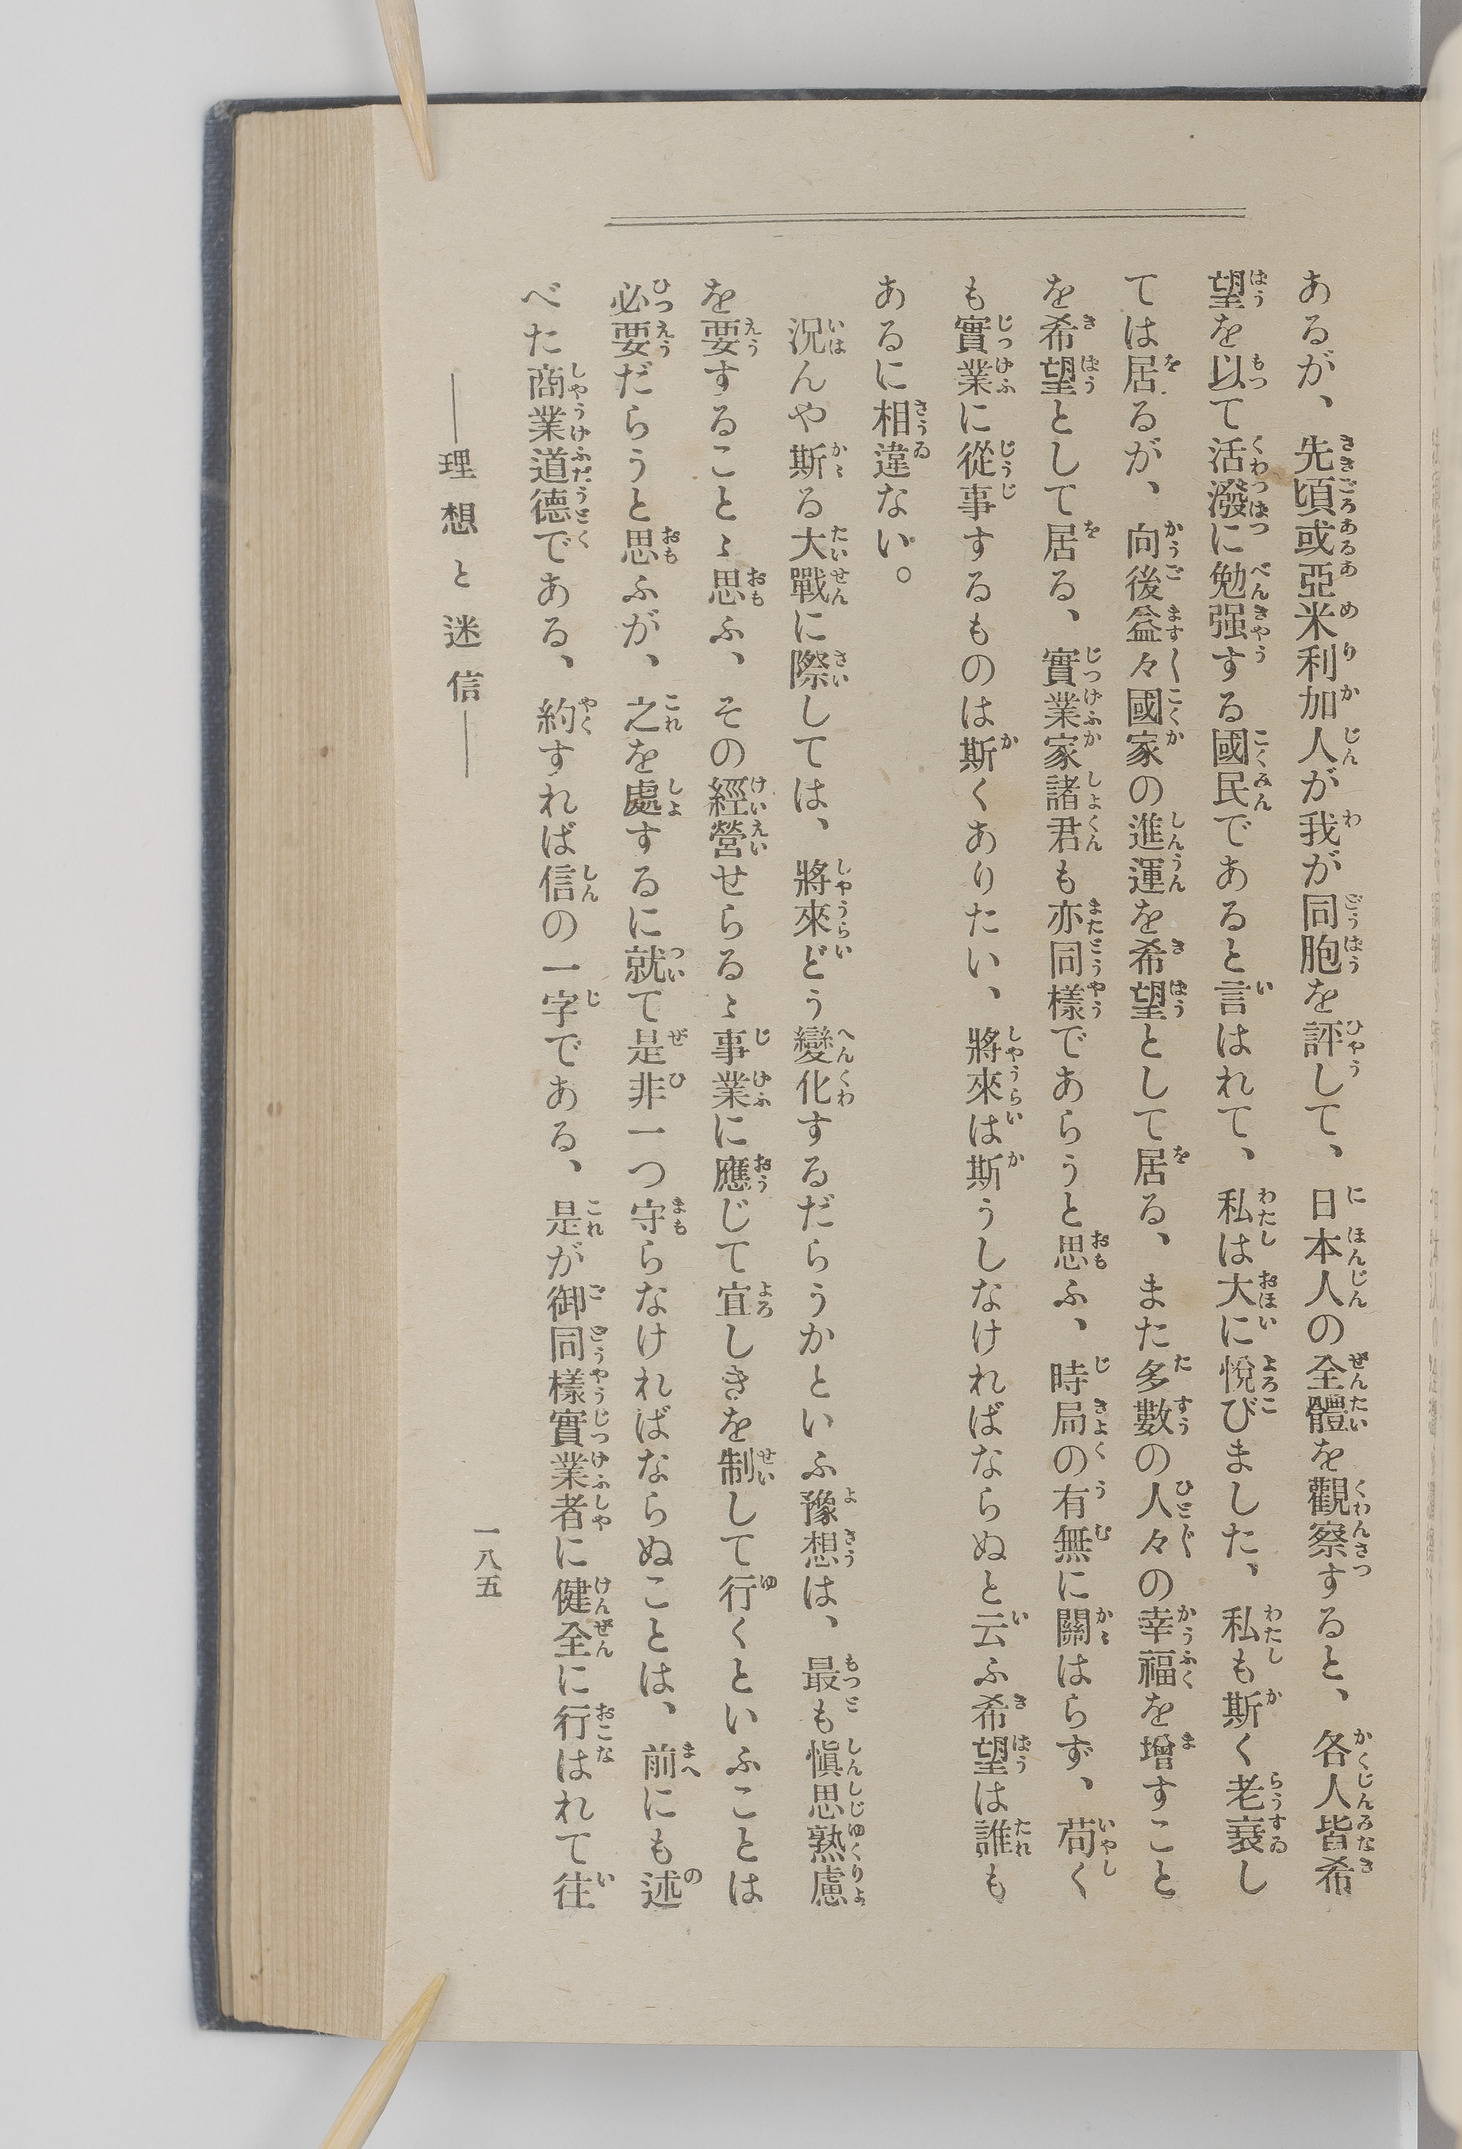 あるが、先頃或亞米利加人が我が同胞を評して、日本人の全體を觀察すると、各人皆希
望を以て活潑に勉强する國民であると言はれて、私は大に悅びました、私も斯く老衰し
ては居るが、向後益々國家の進運を希望として居る、また多數の人々の幸福を增すこと
を希望として居る、實業家諸君も亦同樣であらうと思ふ、時局の有無に關はらず、苟く
も實業に從事するものは斯くありたい、將來は斯うしなければならぬと云ふ希望は誰も
あるに相違ない。
況んや斯る大戰に際しては、將來どう變化するだらうかといふ豫想は、最も愼思熟慮
を要することゝ思ふ、その經營せらるゝ事業に應じて宜しきを制して行くといふことは
必要だらうと思ふが、之を處するに就て是非一つ守らなければならぬことは、前にも述
べた商業道德である、約すれば信の一字である、是が御同樣實業者に健全に行はれて往
――理想と迷信――
一八五